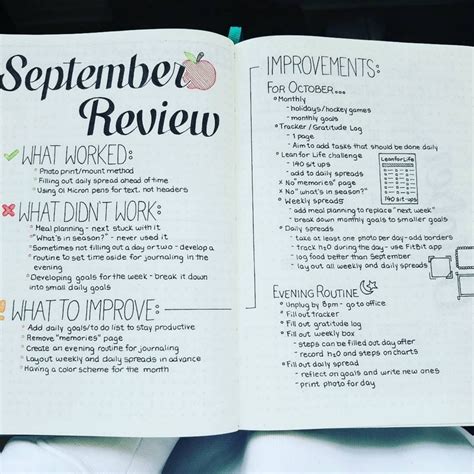 September
Review
WHAT WORKED:
Photo print/mount method
Filling out daily spread ahead of time
Using 01 Micron pens for text, not headers
WHAT DIDN'T WORK:
Meal planning - next stuck with it
"What's in season?" - never used it
Sometimes not filling out a day or two - develop a
routine to set time aside for journaling in the
evening
Developing goals for the week - break it down
into small daily goals
WHAT TO IMPROVE:
Add daily goals/to do list to stay productive
Remove "memories" page
Create an evening routine for journaling
Layout weekly and daily spreads in advance
Having a color scheme for the month
IMPROVEMENTS:
FOR OCTOBER...
Monthly
- holidays/hockey games
- monthly goals
Tracker / Gratitude Log
- 1 page
- Aim to add tasks that should be done daily
Lean for Life challenge
- 140 sit-ups
- add to daily spreads
No "memories" page
No "what's in season?"
Weekly spreads
- add meal planning to replace "next week"
- break down monthly goals to smaller goals
Daily spreads
- take at least one photo per day - add borders
- track H2O during the day - use FitBit app
- log food better than September
- lay out all weekly and daily spreads
Lean for Life
140 sit-ups
EVENING ROUTINE
Unplug by 8pm - go to office
Fill out tracker
Fill out gratitude log
Fill out weekly box
- steps can be filled out day after
- record H2O and steps on charts
Fill out daily spread
- reflect on goals and write new ones
- print photo for day